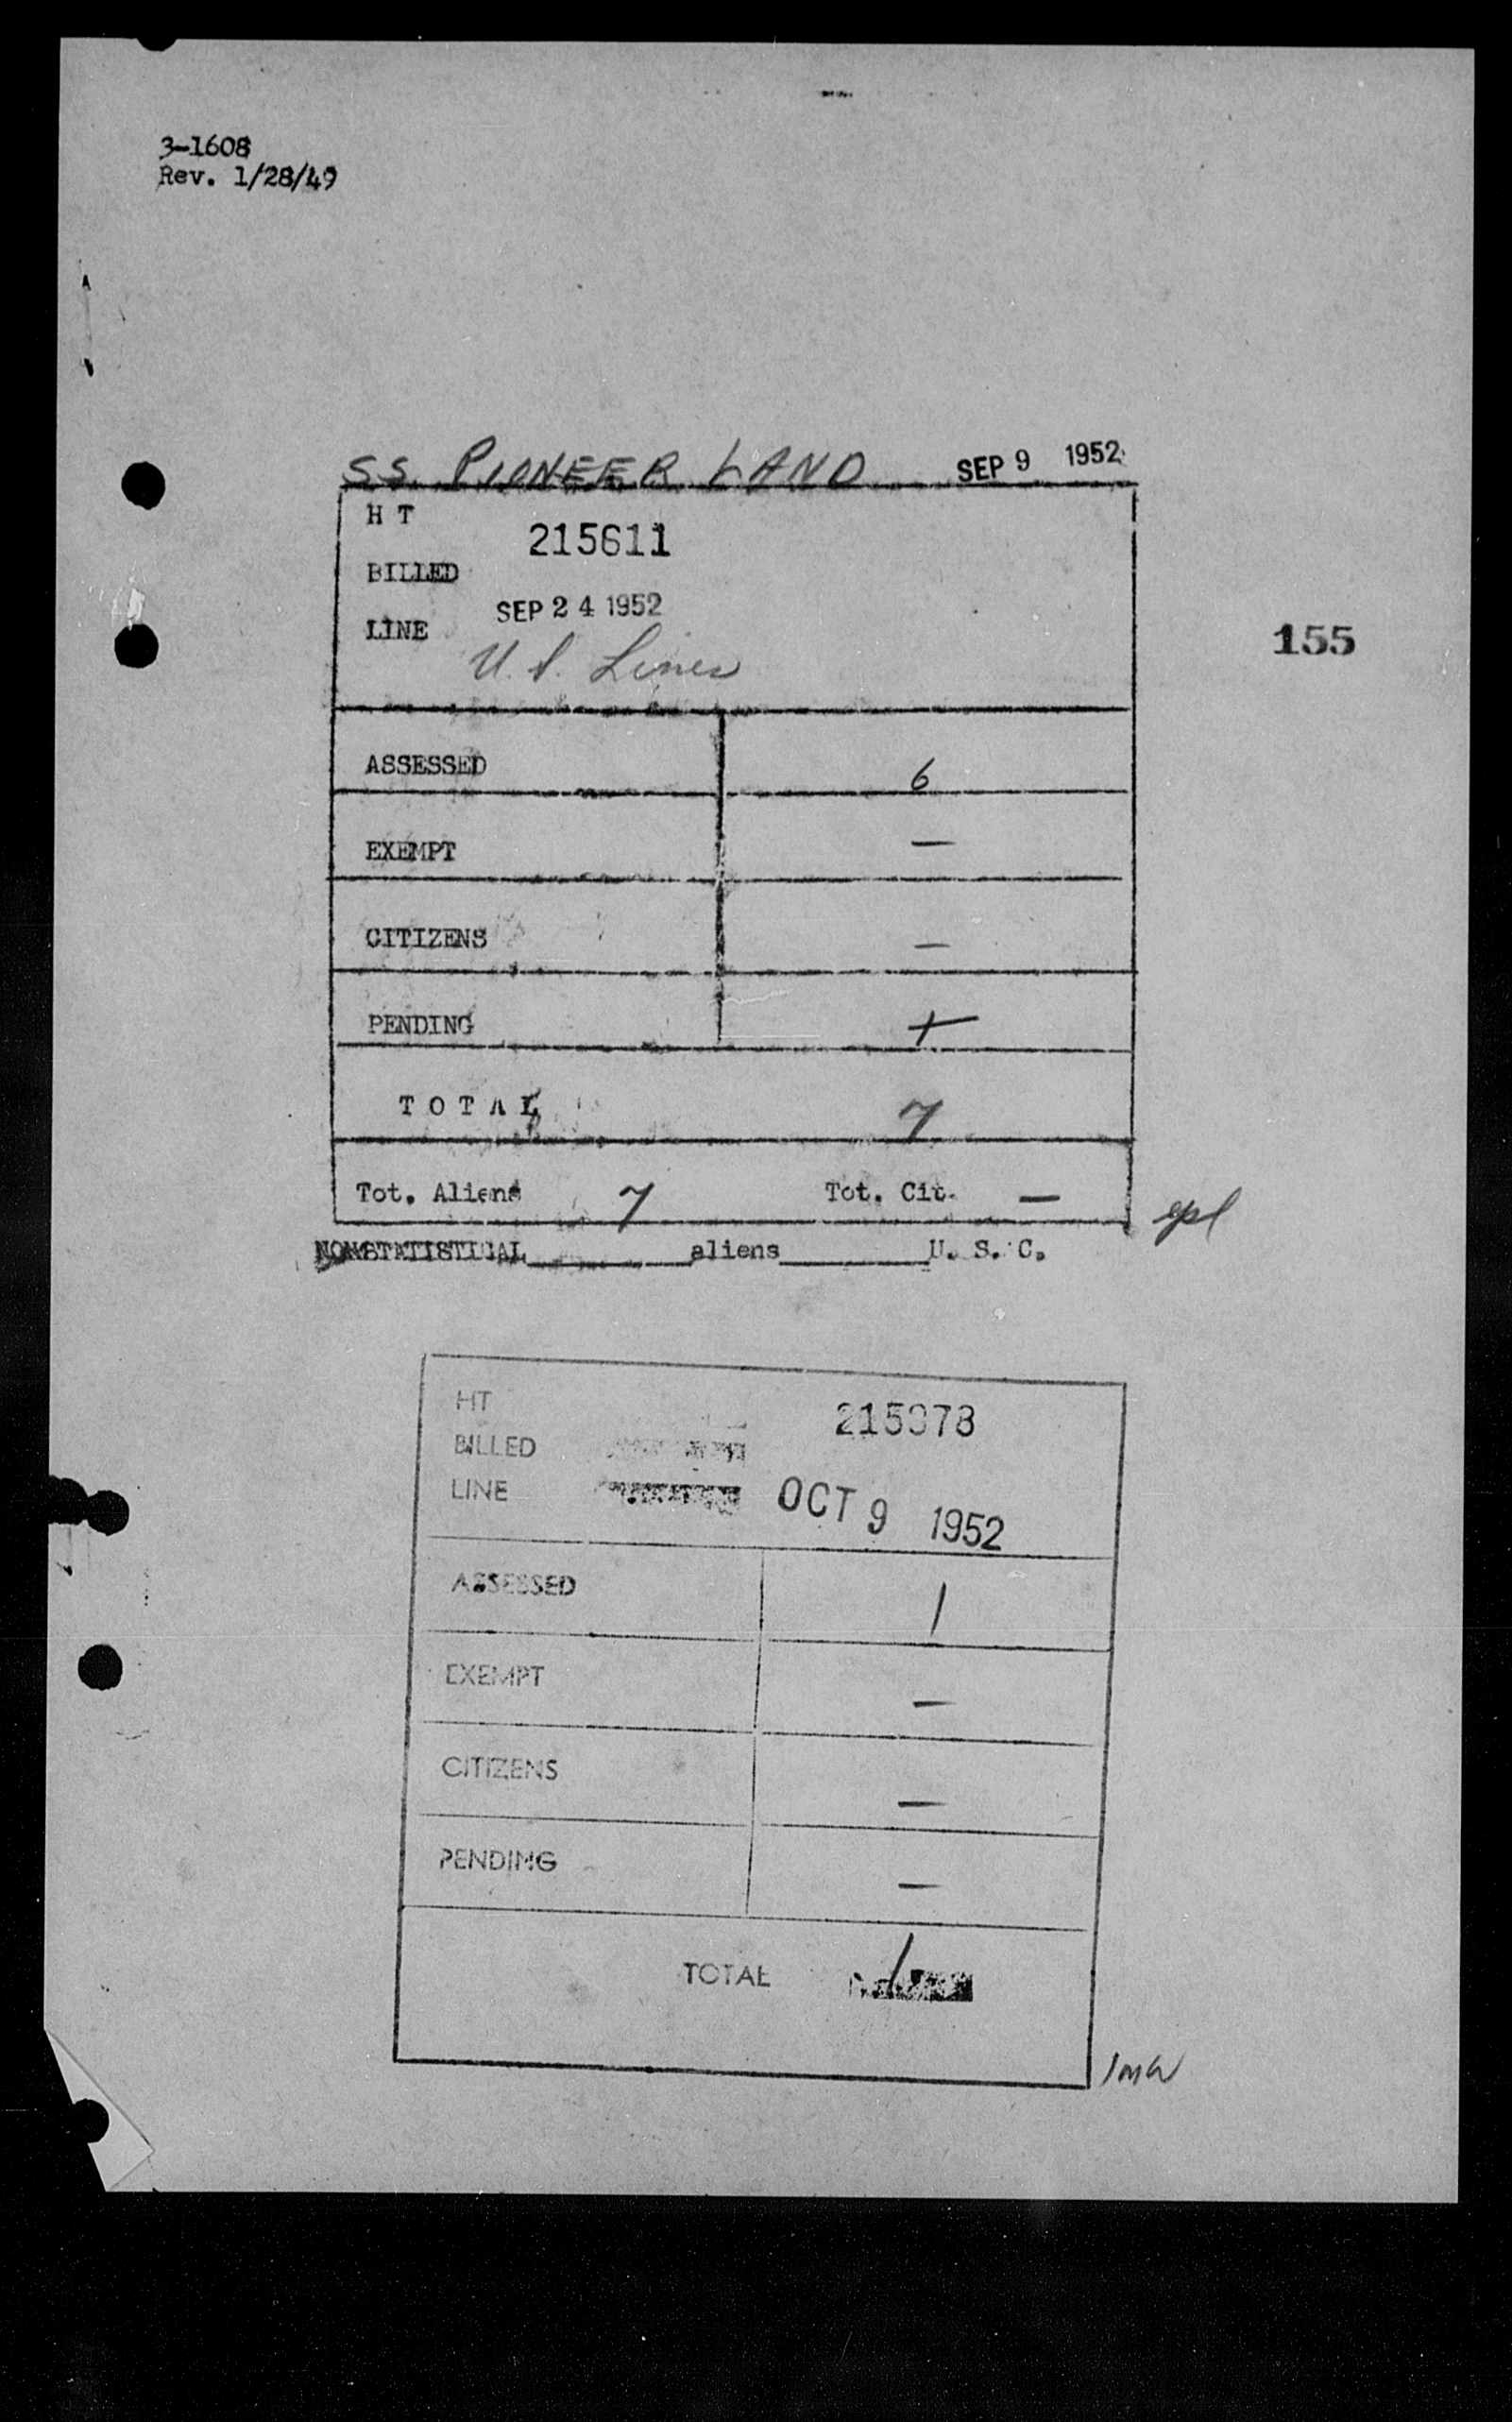 3-1608
Rev. 1/28/49
SS. PIONEER LAND SEP 9 1952
H T
215611
BILLED
SEP 24 1952
LINE
U.S. Lines
155
ASSESSED 6
EXEMPT —
CITIZENS —
PENDING
TOTAL 7
Tot. Aliens 7 Tot. Cit. —
epl
NONSTATISTICAL________aliens________U. S. C.
HT
BILLED
LINE OCT 9 1952
ASSESSED 1
EXEMPT —
CITIZENS —
PENDING —
TOTAL 1